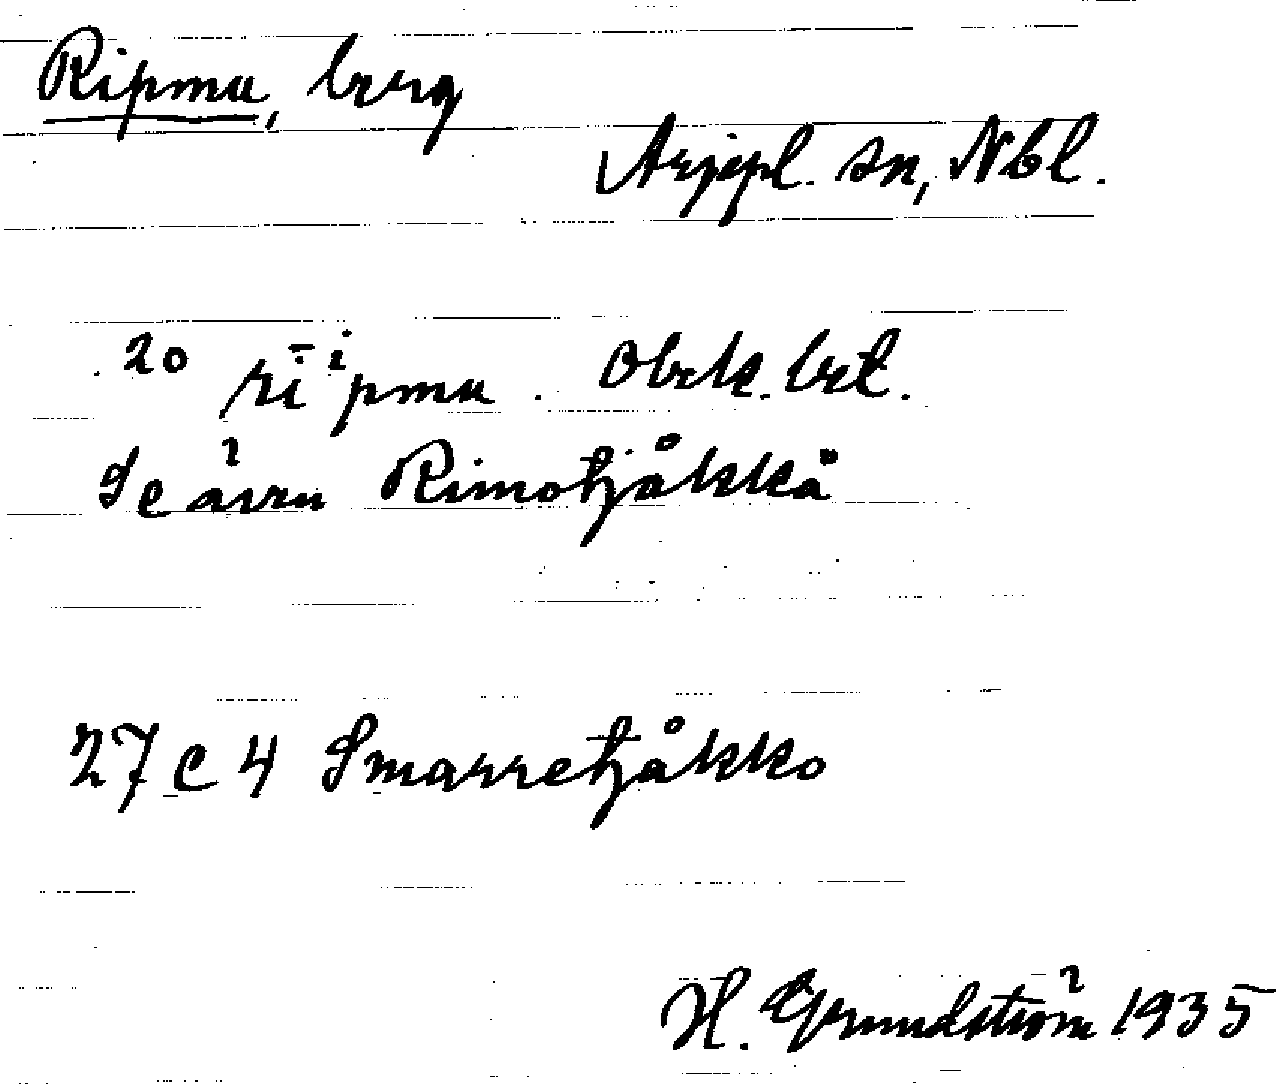 Ripmu, berg
Arjepl. sn, Nbl.
20 rīⁱpmu. Obek. bet.
Se även Rimotjåkkå
27 C 4 Smarretjåkko
H. Grundström 1935